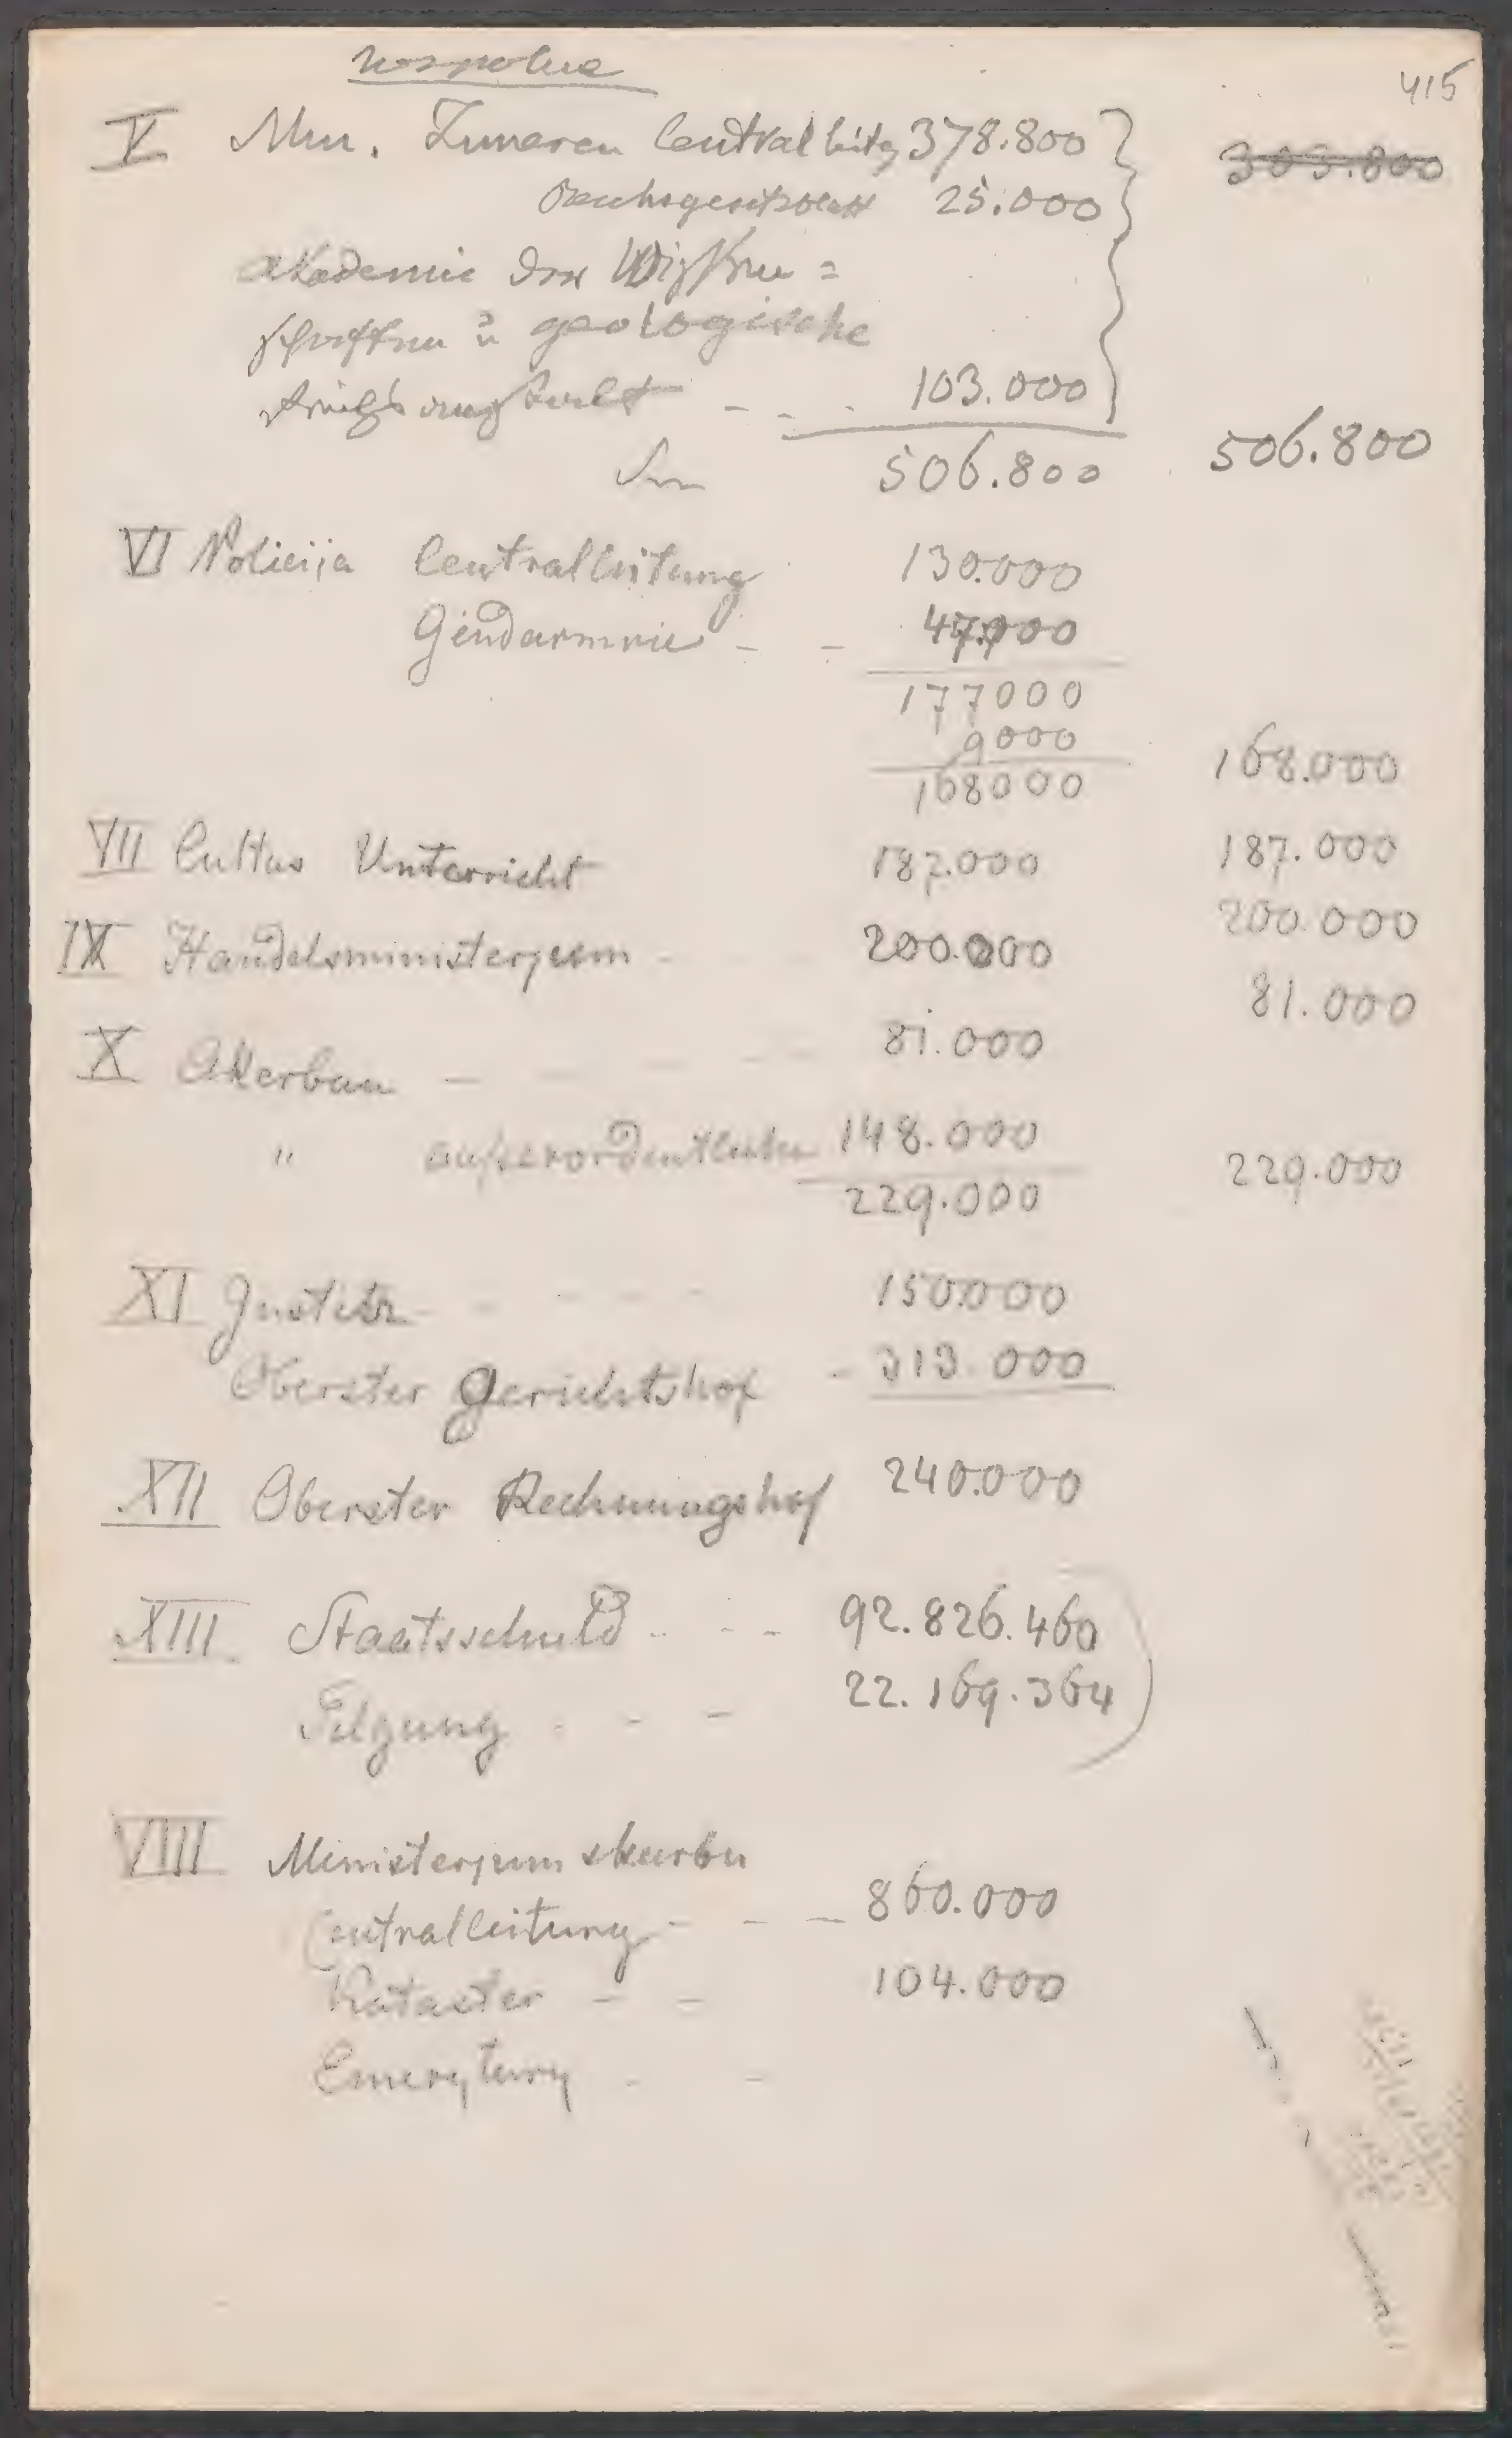 wspolne
415
V Min. Inneren Centralleitg 378.800 303.800
Reichsgesetzblatt 25.000
Akademie der Wissen=
schaften u geologische
Reichsanstalt - - - 103.000
506.800 506.800
VI Policija Centralleitung 130.000
Gendarmrie - - 47.000
177000
9000
168000 168.000
VII Cultus Unterricht 187.000 187.000
IX Handelsministerjum - 200.000 200.000
X Akerbau - - - 81.000 81.000
" außerordentliche 148.000
229.000 229.000
XI Justitz - - - - 150.000
Oberster Gerichtshof - 313.000
XII Oberster Rechnungshof 240.000
XIII Staatsschuld - - - 92.826.460
Tilgung - - - 22.169.364
VIII Ministerjum skarbu
Centralleitung - - - 860.000
Kataster - - 104.000
Emerytury - -